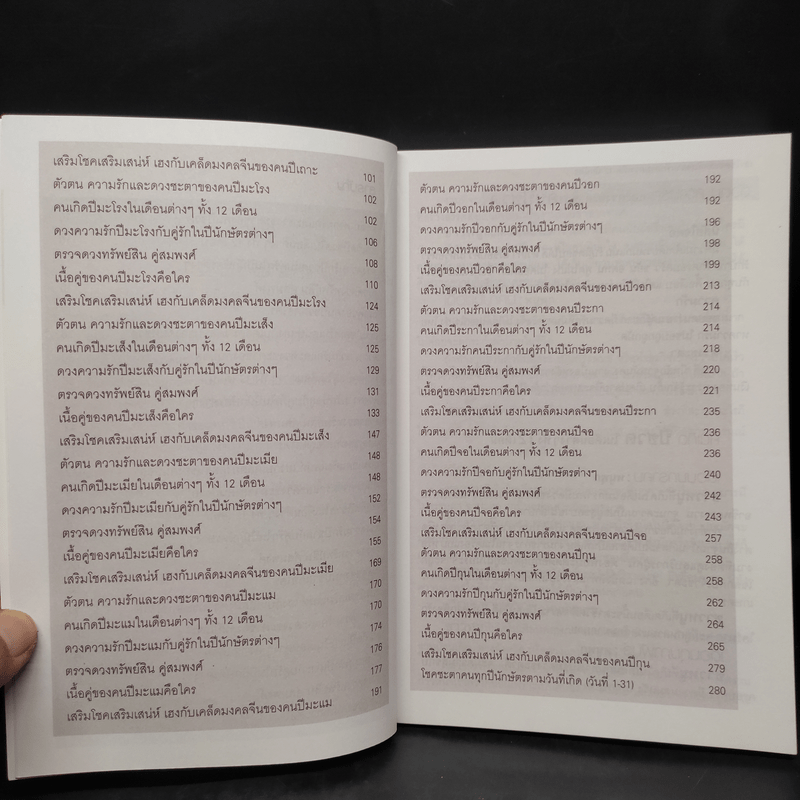 เสริมโชคเสริมเสน่ห์ เฮงกับเคล็ดมงคลจีนของคนปีเถาะ 101
ตัวตน ความรักและดวงชะตาของคนปีมะโรง 102
คนเกิดปีมะโรงในเดือนต่างๆ ทั้ง 12 เดือน 102
ดวงความรักปีมะโรงกับคู่รักในปีนักษัตรต่างๆ 106
ตรวจดวงทรัพย์สิน คู่สมพงศ์ 108
เนื้อคู่ของคนปีมะโรงคือใคร 110
เสริมโชคเสริมเสน่ห์ เฮงกับเคล็ดมงคลจีนของคนปีมะโรง 124
ตัวตน ความรักและดวงชะตาของคนปีมะเส็ง 125
คนเกิดปีมะเส็งในเดือนต่างๆ ทั้ง 12 เดือน 125
ดวงความรักปีมะเส็งกับคู่รักในปีนักษัตรต่างๆ 129
ตรวจดวงทรัพย์สิน คู่สมพงศ์ 131
เนื้อคู่ของคนปีมะเส็งคือใคร 133
เสริมโชคเสริมเสน่ห์ เฮงกับเคล็ดมงคลจีนของคนปีมะเส็ง 147
ตัวตน ความรักและดวงชะตาของคนปีมะเมีย 148
คนเกิดปีมะเมียในเดือนต่างๆ ทั้ง 12 เดือน 148
ดวงความรักปีมะเมียกับคู่รักในปีนักษัตรต่างๆ 152
ตรวจดวงทรัพย์สิน คู่สมพงศ์ 154
เนื้อคู่ของคนปีมะเมียคือใคร 155
เสริมโชคเสริมเสน่ห์ เฮงกับเคล็ดมงคลจีนของคนปีมะเมีย 169
ตัวตน ความรักและดวงชะตาของคนปีมะแม 170
คนเกิดปีมะแมในเดือนต่างๆ ทั้ง 12 เดือน 170
ดวงความรักปีมะแมกับคู่รักในปีนักษัตรต่างๆ 174
ตรวจดวงทรัพย์สิน คู่สมพงศ์ 176
เนื้อคู่ของคนปีมะแมคือใคร 177
เสริมโชคเสริมเสน่ห์ เฮงกับเคล็ดมงคลจีนของคนปีมะแม 191
ตัวตน ความรักและดวงชะตาของคนปีวอก 192
คนเกิดปีวอกในเดือนต่างๆ ทั้ง 12 เดือน 192
ดวงความรักปีวอกกับคู่รักในปีนักษัตรต่างๆ 196
ตรวจดวงทรัพย์สิน คู่สมพงศ์ 198
เนื้อคู่ของคนปีวอกคือใคร 199
เสริมโชคเสริมเสน่ห์ เฮงกับเคล็ดมงคลจีนของคนปีวอก 213
ตัวตน ความรักและดวงชะตาของคนปีระกา 214
คนเกิดปีระกาในเดือนต่างๆ ทั้ง 12 เดือน 214
ดวงความรักคนปีระกากับคู่รักในปีนักษัตรต่างๆ 218
ตรวจดวงทรัพย์สิน คู่สมพงศ์ 220
เนื้อคู่ของคนปีระกาคือใคร 221
เสริมโชคเสริมเสน่ห์ เฮงกับเคล็ดมงคลจีนของคนปีระกา 235
ตัวตน ความรักและดวงชะตาของคนปีจอ 236
คนเกิดปีจอในเดือนต่างๆ ทั้ง 12 เดือน 236
ดวงความรักปีจอกับคู่รักในปีนักษัตรต่างๆ 240
ตรวจดวงทรัพย์สิน คู่สมพงศ์ 242
เนื้อคู่ของคนปีจอคือใคร 243
เสริมโชคเสริมเสน่ห์ เฮงกับเคล็ดมงคลจีนของคนปีจอ 257
ตัวตน ความรักและดวงชะตาของคนปีกุน 258
คนเกิดปีกุนในเดือนต่างๆ ทั้ง 12 เดือน 258
ดวงความรักปีกุนกับคู่รักในปีนักษัตรต่างๆ 262
ตรวจดวงทรัพย์สิน คู่สมพงศ์ 264
เนื้อคู่ของคนปีกุนคือใคร 265
เสริมโชคเสริมเสน่ห์ เฮงกับเคล็ดมงคลจีนของคนปีกุน 279
โชคชะตาคนทุกปีนักษัตรตามวันที่เกิด (วันที่ 1-31) 280